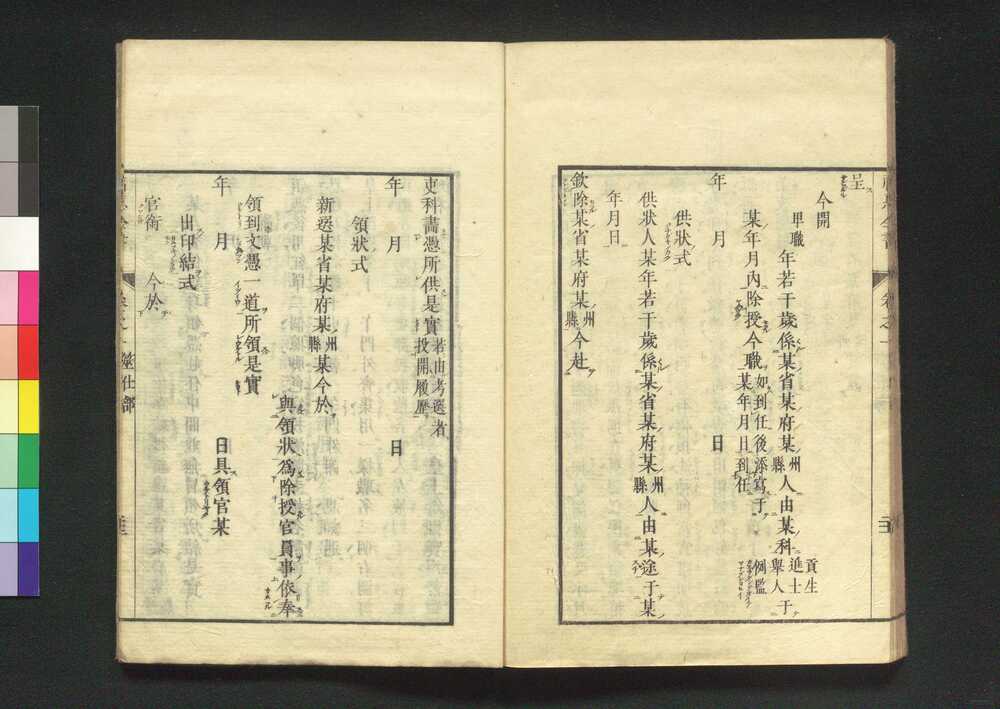 呈
今開
甲職
年若干歲係某省某府某州縣人由某科進士舉人貢生例監于
某年月內除授今職某年月日到任如到任後添寫于
年 月 日
供狀式
供狀人某年若干歲係某省某府某州縣人由某途于某
年月日
欽除某省某府某州縣今赴
吏科畵憑所供是實若由考選者投開履歷
年 月 日
領狀式
新選某省某府某州縣某今於
與領狀爲除授官員事依奉
領到文憑一道所領是實
年 月 日具領官某
出印結式
官衔 今於
筮仕部